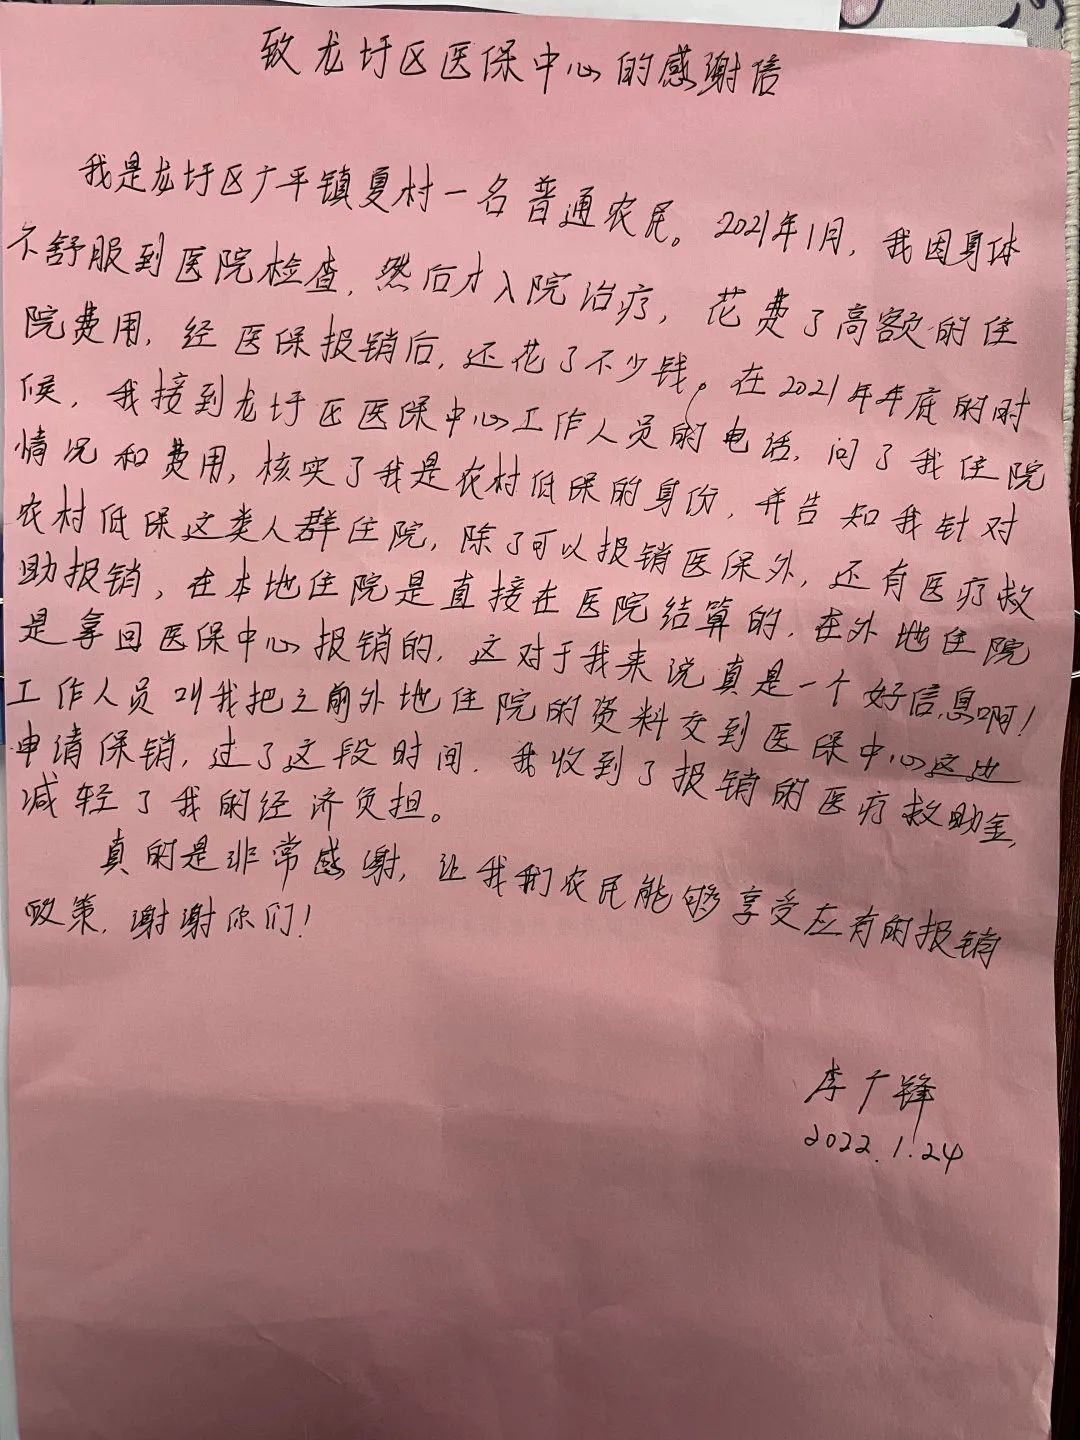 致龙圩区医保中心的感谢信
我是龙圩区广平镇夏村一名普通农民。2021年1月,我因身体
不舒服到医院检查,然后才入院治疗,花费了高额的住
院费用,经医保报销后,还花了不少钱。在2021年年底的时
候,我接到龙圩区医保中心工作人员的电话,问了我住院
情况和费用,核实了我是农村低保的身份,并告知我针对
农村低保这类人群住院,除了可以报销医保外,还有医疗救
助报销,在本地住院是直接在医院结算的,在外地住院
是拿回医保中心报销的,这对于我来说真是一个好信息啊!
工作人员叫我把之前外地住院的资料交到医保中心这边
申请保销,过了这段时间,我收到了报销的医疗救助金,
减轻了我的经济负担。
真的是非常感谢,让我们农民能够享受应有的报销
政策,谢谢你们!
李广锋
2022.1.24